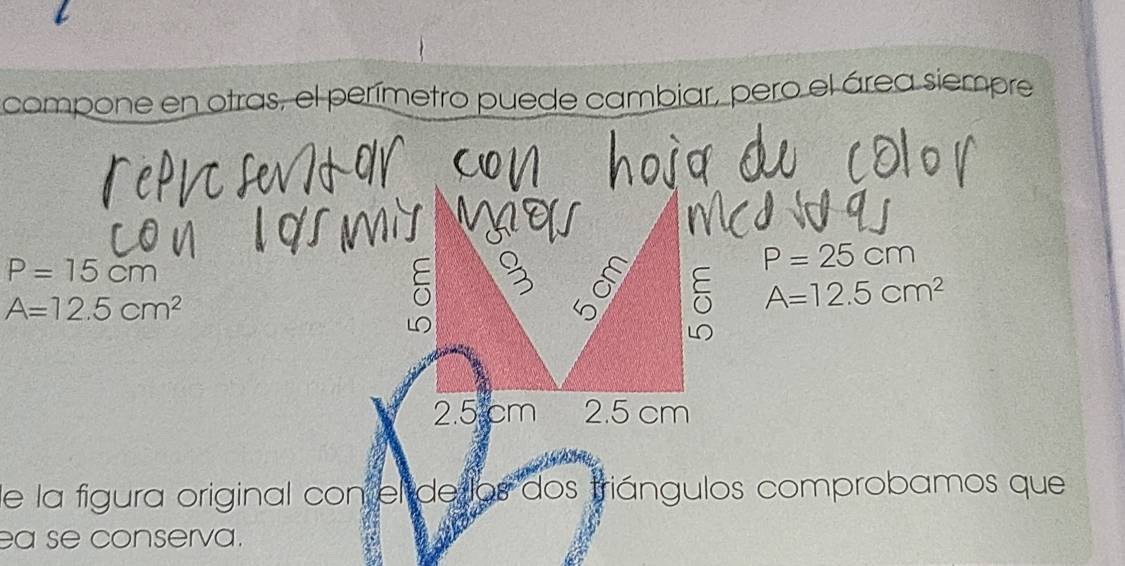 compone en otras, el perímetro puede cambiar, pero el área siempre
representar con hoja de color
con las mismas medidas
P = 15 cm
A=12.5 cm²
5 cm
5 cm
5 cm
5 cm
P = 25 cm
A=12.5 cm²
2.5 cm
2.5 cm
de la figura original con el de los dos triángulos comprobamos que
ea se conserva.